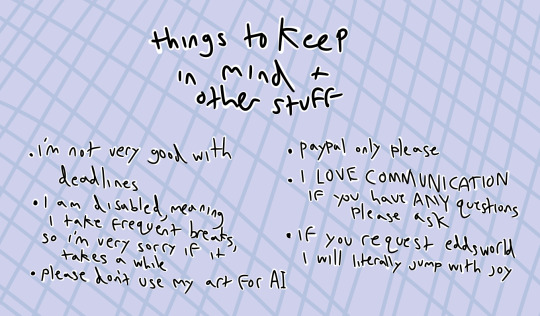 things to keep
in mind +
other stuff
• i'm not very good with
deadlines
• I am disabled, meaning
I take frequent breaks,
so i'm very sorry if it
takes a while
• please don't use my art for AI
• paypal only please
• I LOVE COMMUNICATION
IF you have ANY questions
please ask
• IF you request eddsworld
I will literally jump with joy